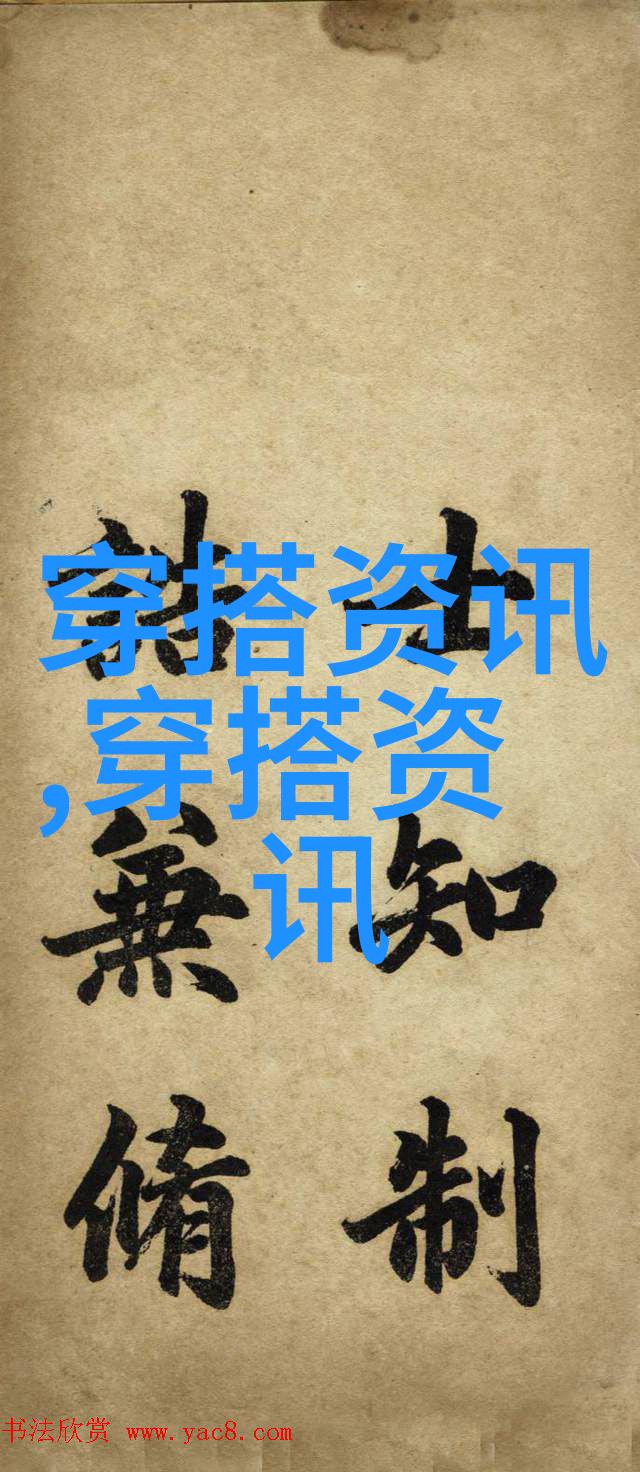 穿搭资讯
,穿搭资
讯
士知制
誥兼脩
书法欣赏 www.yac8.com